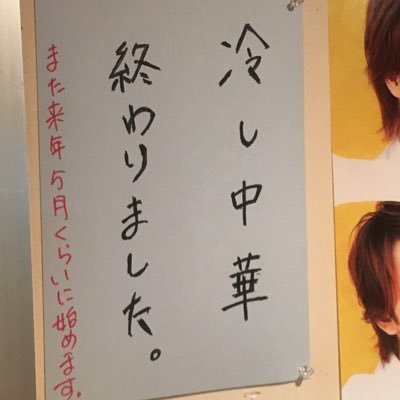 冷し中華
終わりました。
また来年5月くらいに始めます。